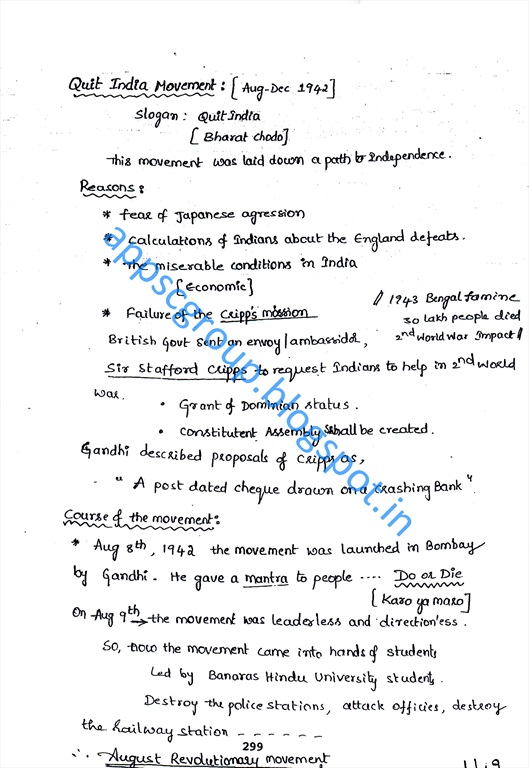 Quit India Movement : [Aug-Dec 1942]
Slogan : Quit India
[Bharat chodo]
This movement was laid down a path to Independence.
Reasons:
* Fear of Japanese agression
* Calculations of Indians about the England defeats.
* The miserable conditions in India
[Economic]
// 1943 Bengal famine
30 lakh people died
2nd World War Impact //
* Failure of the Cripp's mission
British Govt sent an envoy/ambassidor,
Sir Stafford Cripps to request Indians to help in 2nd World
War.
• Grant of Dominian status.
• Constitutent Assembly shall be created.
Gandhi described proposals of Cripps as,
"A post dated cheque drawn on a crashing Bank".
Course of the movement:
* Aug 8th, 1942 the movement was launched in Bombay
by Gandhi. He gave a mantra to people .... Do or Die
[Karo ya maro]
On Aug 9th → the movement was leaderless and direction'ess.
So, now the movement came into hands of students
Led by Banaras Hindu University students.
Destroy the police stations, attack officies, destroy
the Railway station - - - - - -
299
∴ August Revolutionary movement
11.9
appscgroup.blogspot.in